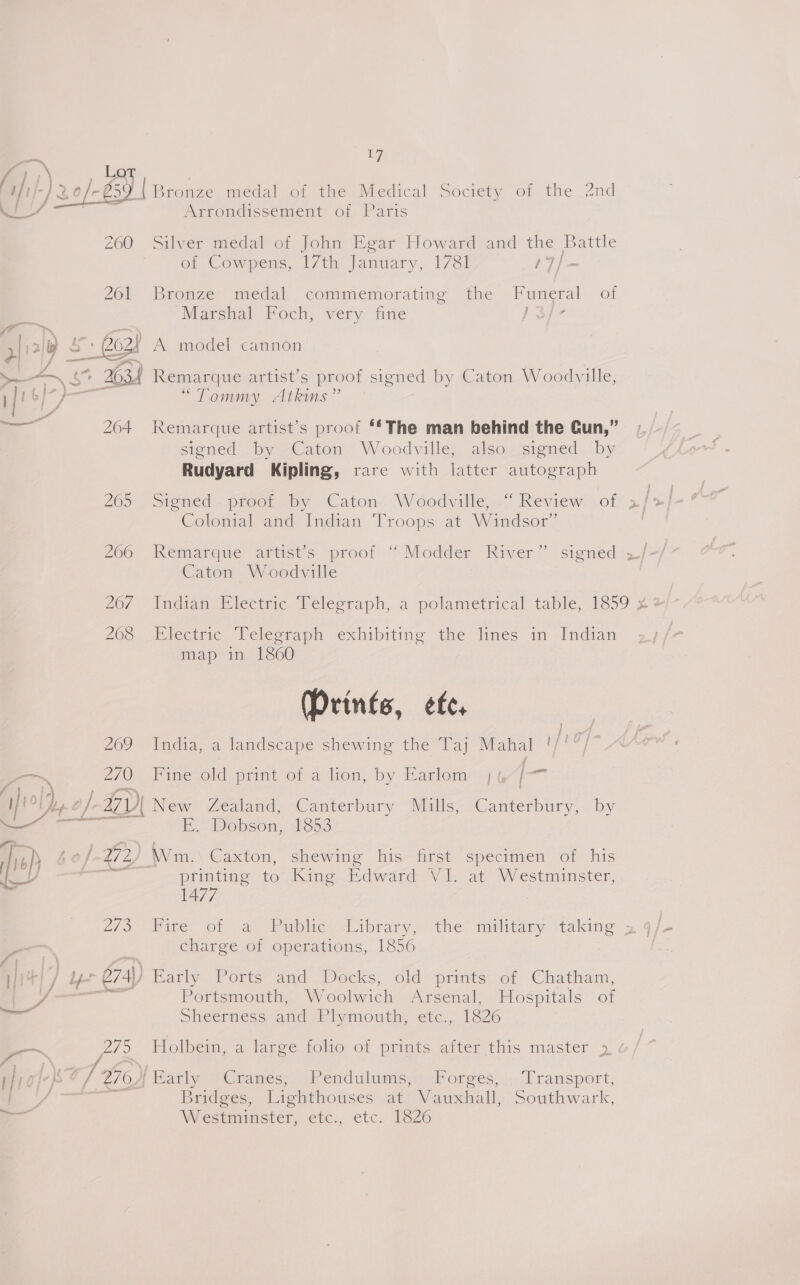 17
Lot
259 Bronze medal of the Medical Society of the 2nd
Arrondissement of Paris
260 Silver medal of John Egar Howard and the Battle
of Cowpens, 17th January, 1781 17/-
261 Bronze medal commemorating the Funeral of
Marshal Foch, very fine 13/-
262 A model cannon
263 Remarque artist's proof signed by Caton Woodville,
“Tommy Atkins”
264 Remarque artist's proof “The man behind the Gun,”
signed by Caton Woodville, also signed by
Rudyard Kipling, rare with latter autograph
265 Signed proof by Caton Woodville, “Review of
Colonial and Indian Troops at Windsor”
266 Remarque artist's proof “Modder River” signed
Caton Woodville
267 Indian Electric Telegraph, a polametrical table, 1859
268 Electric Telegraph exhibiting the lines in Indian
map in 1860
Prints, etc.
269 India, a landscape shewing the Taj Mahal
270 Fine old print of a lion, by Earlom
271 New Zealand, Canterbury Mills, Canterbury, by
E. Dobson, 1853
272 Wm. Caxton, shewing his first specimen of his
printing to King Edward VI. at Westminster,
1477
273 Fire of a Public Library, the military taking
charge of operations, 1856
274 Early Ports and Docks, old prints of Chatham,
Portsmouth, Woolwich Arsenal, Hospitals of
Sheerness and Plymouth, etc., 1826
275 Holbein, a large folio of prints after this master
276 Early Cranes, Pendulums, Forges, Transport,
Bridges, Lighthouses at Vauxhall, Southwark,
Westminster, etc., etc. 1826